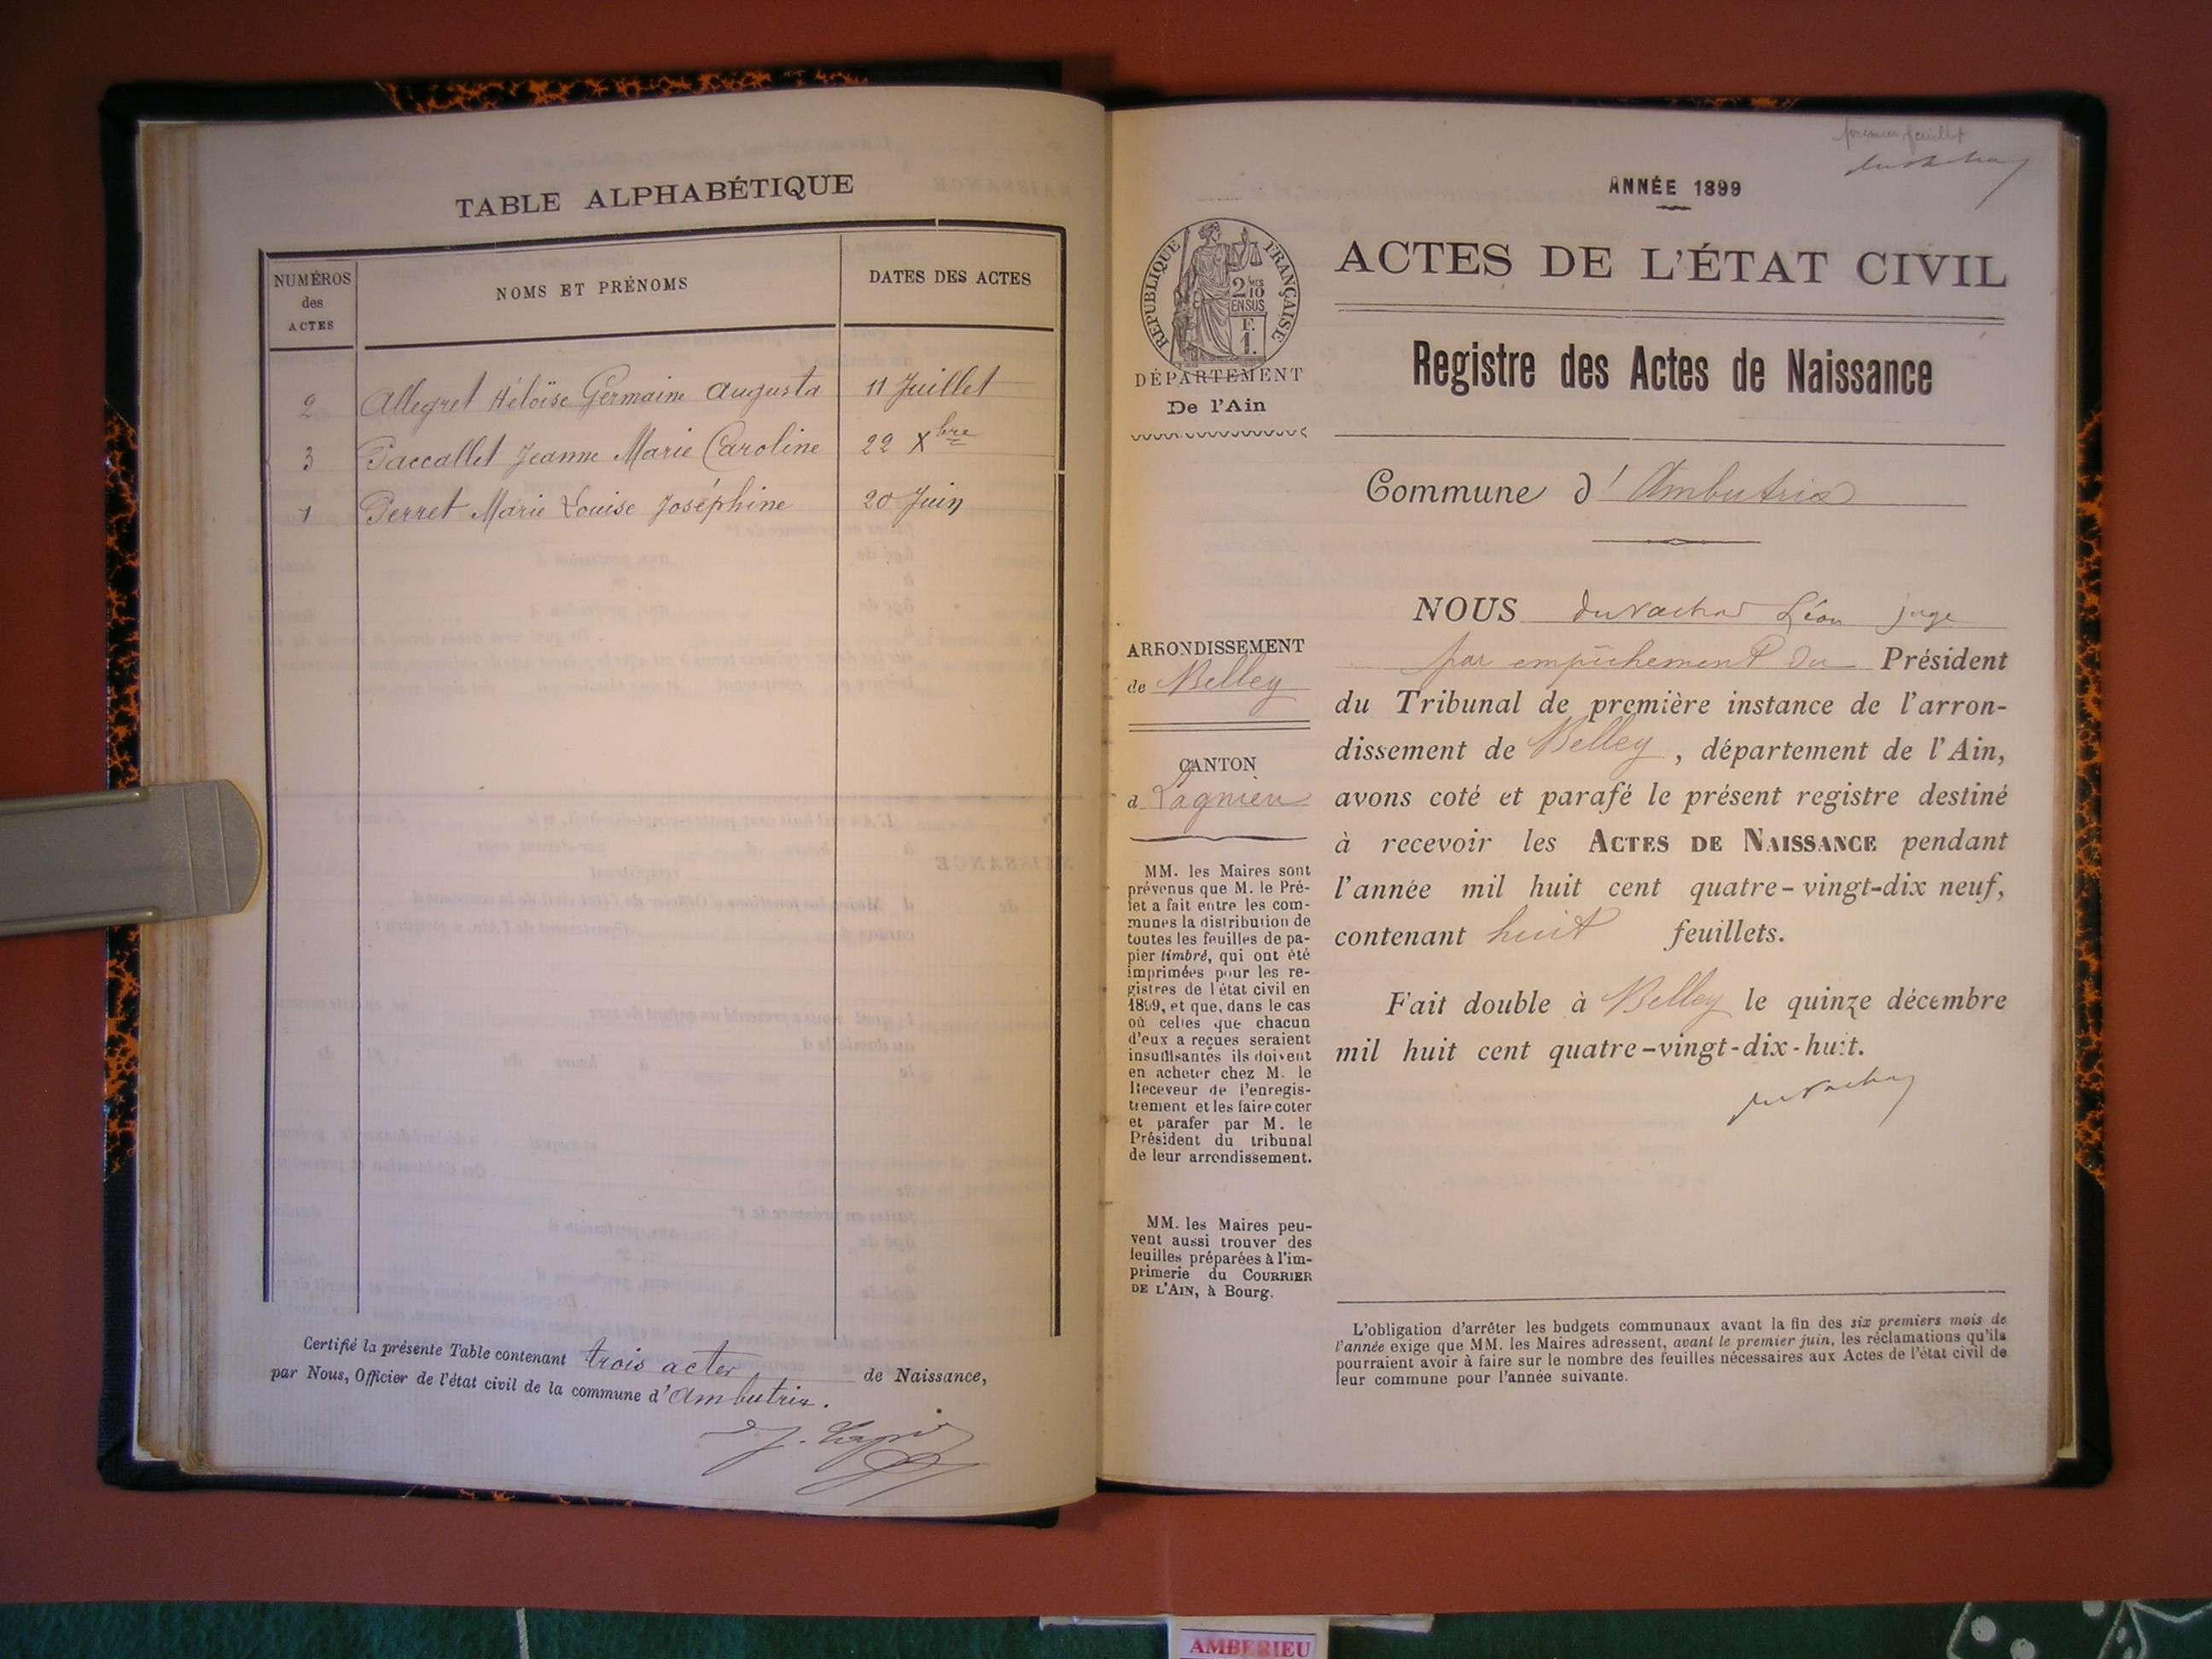 TABLE ALPHABÉTIQUE
NUMÉROS
des
ACTES
NOMS ET PRÉNOMS
DATES DES ACTES
2 Allegret Héloïse Germaine Augusta 11 Juillet
3 Paccallet Jeanne Marie Caroline 22 Xbre
1 Perret Marie Louise Joséphine 20 Juin
Certifié la présente Table contenant trois actes de Naissance,
par Nous, Officier de l'état civil de la commune d'Ambutrix.
premier feuillet
ANNÉE 1899
RÉPUBLIQUE FRANÇAISE
2 MES
10
EN SUS
F.
1.
DÉPARTEMENT
De l'Ain
ARRONDISSEMENT
de Belley
CANTON
d Lagnieu
MM. les Maires sont
prévenus que M. le Pré-
fet a fait entre les com-
munes la distribution de
toutes les feuilles de pa-
pier timbré, qui ont été
imprimées pour les re-
gistres de l'état civil en
1899, et que, dans le cas
où celles que chacun
d'eux a reçues seraient
insuffisantes ils doivent
en acheter chez M. le
Receveur de l'enregis-
trement et les faire coter
et parafer par M. le
Président du tribunal
de leur arrondissement.
MM. les Maires peu-
vent aussi trouver des
feuilles préparées à l'im-
primerie du COURRIER
DE L'AIN, à Bourg.
ACTES DE L'ÉTAT CIVIL
Registre des Actes de Naissance
Commune d'Ambutrix
NOUS Duvachat Léon juge
par empêchement du Président
du Tribunal de première instance de l'arron-
dissement de Belley, département de l'Ain,
avons coté et parafé le présent registre destiné
à recevoir les ACTES DE NAISSANCE pendant
l'année mil huit cent quatre-vingt-dix neuf,
contenant huit feuillets.
Fait double à Belley le quinze décembre
mil huit cent quatre-vingt-dix-huit.
L'obligation d'arrêter les budgets communaux avant la fin des six premiers mois de
l'année exige que MM. les Maires adressent, avant le premier juin, les réclamations qu'ils
pourraient avoir à faire sur le nombre des feuilles nécessaires aux Actes de l'état civil de
leur commune pour l'année suivante.
AMBERIEU